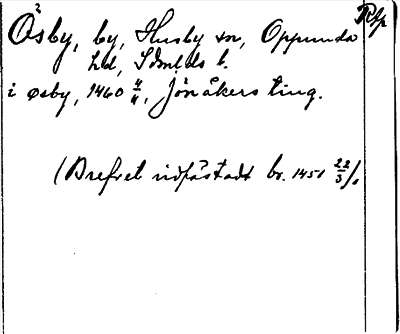 Åsby, by, Husby sn, Oppunda Rsp
hd, Sdmlds l.
i øsby, 1460 4/4, Jönåkers ting.
(Brefvet vidfästadt br. 1451 22/3).